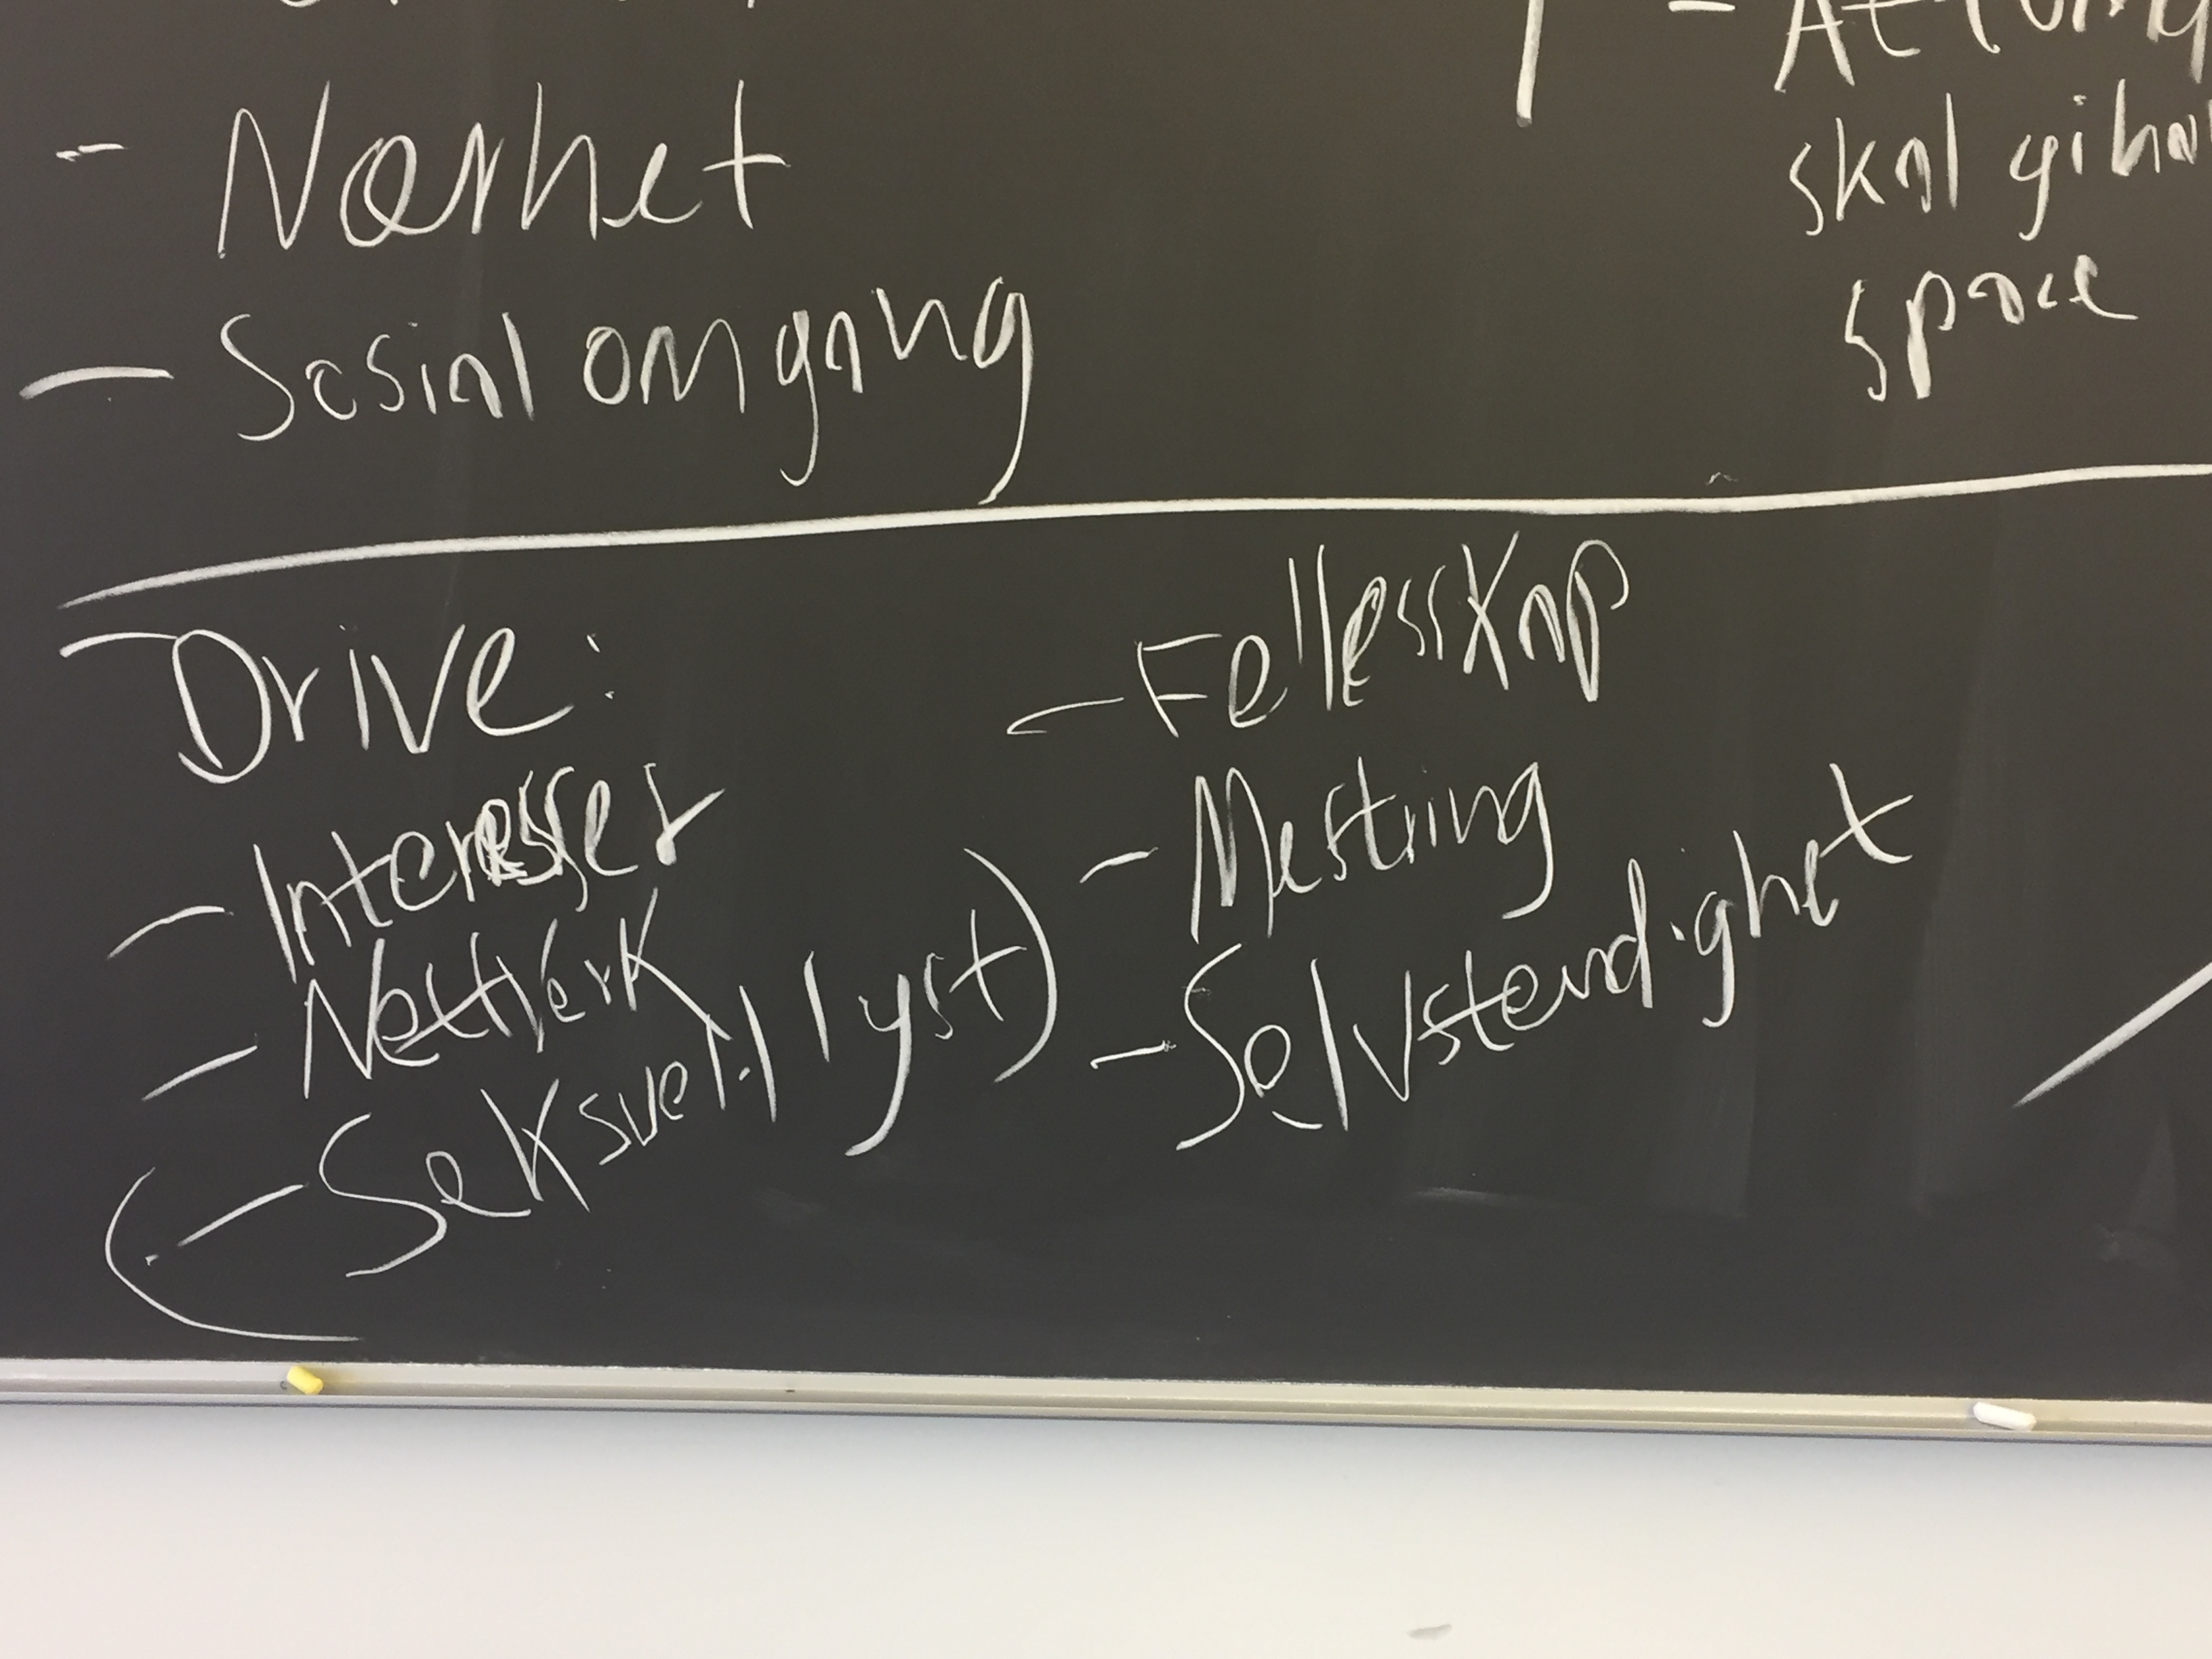 - Nærhet
- Sosial omgang
skal gi
space
Drive:
- Interesser
- Nettverk
(- Seksuell lyst)
- Fellesskap
- Mestring
- Selvstendighet